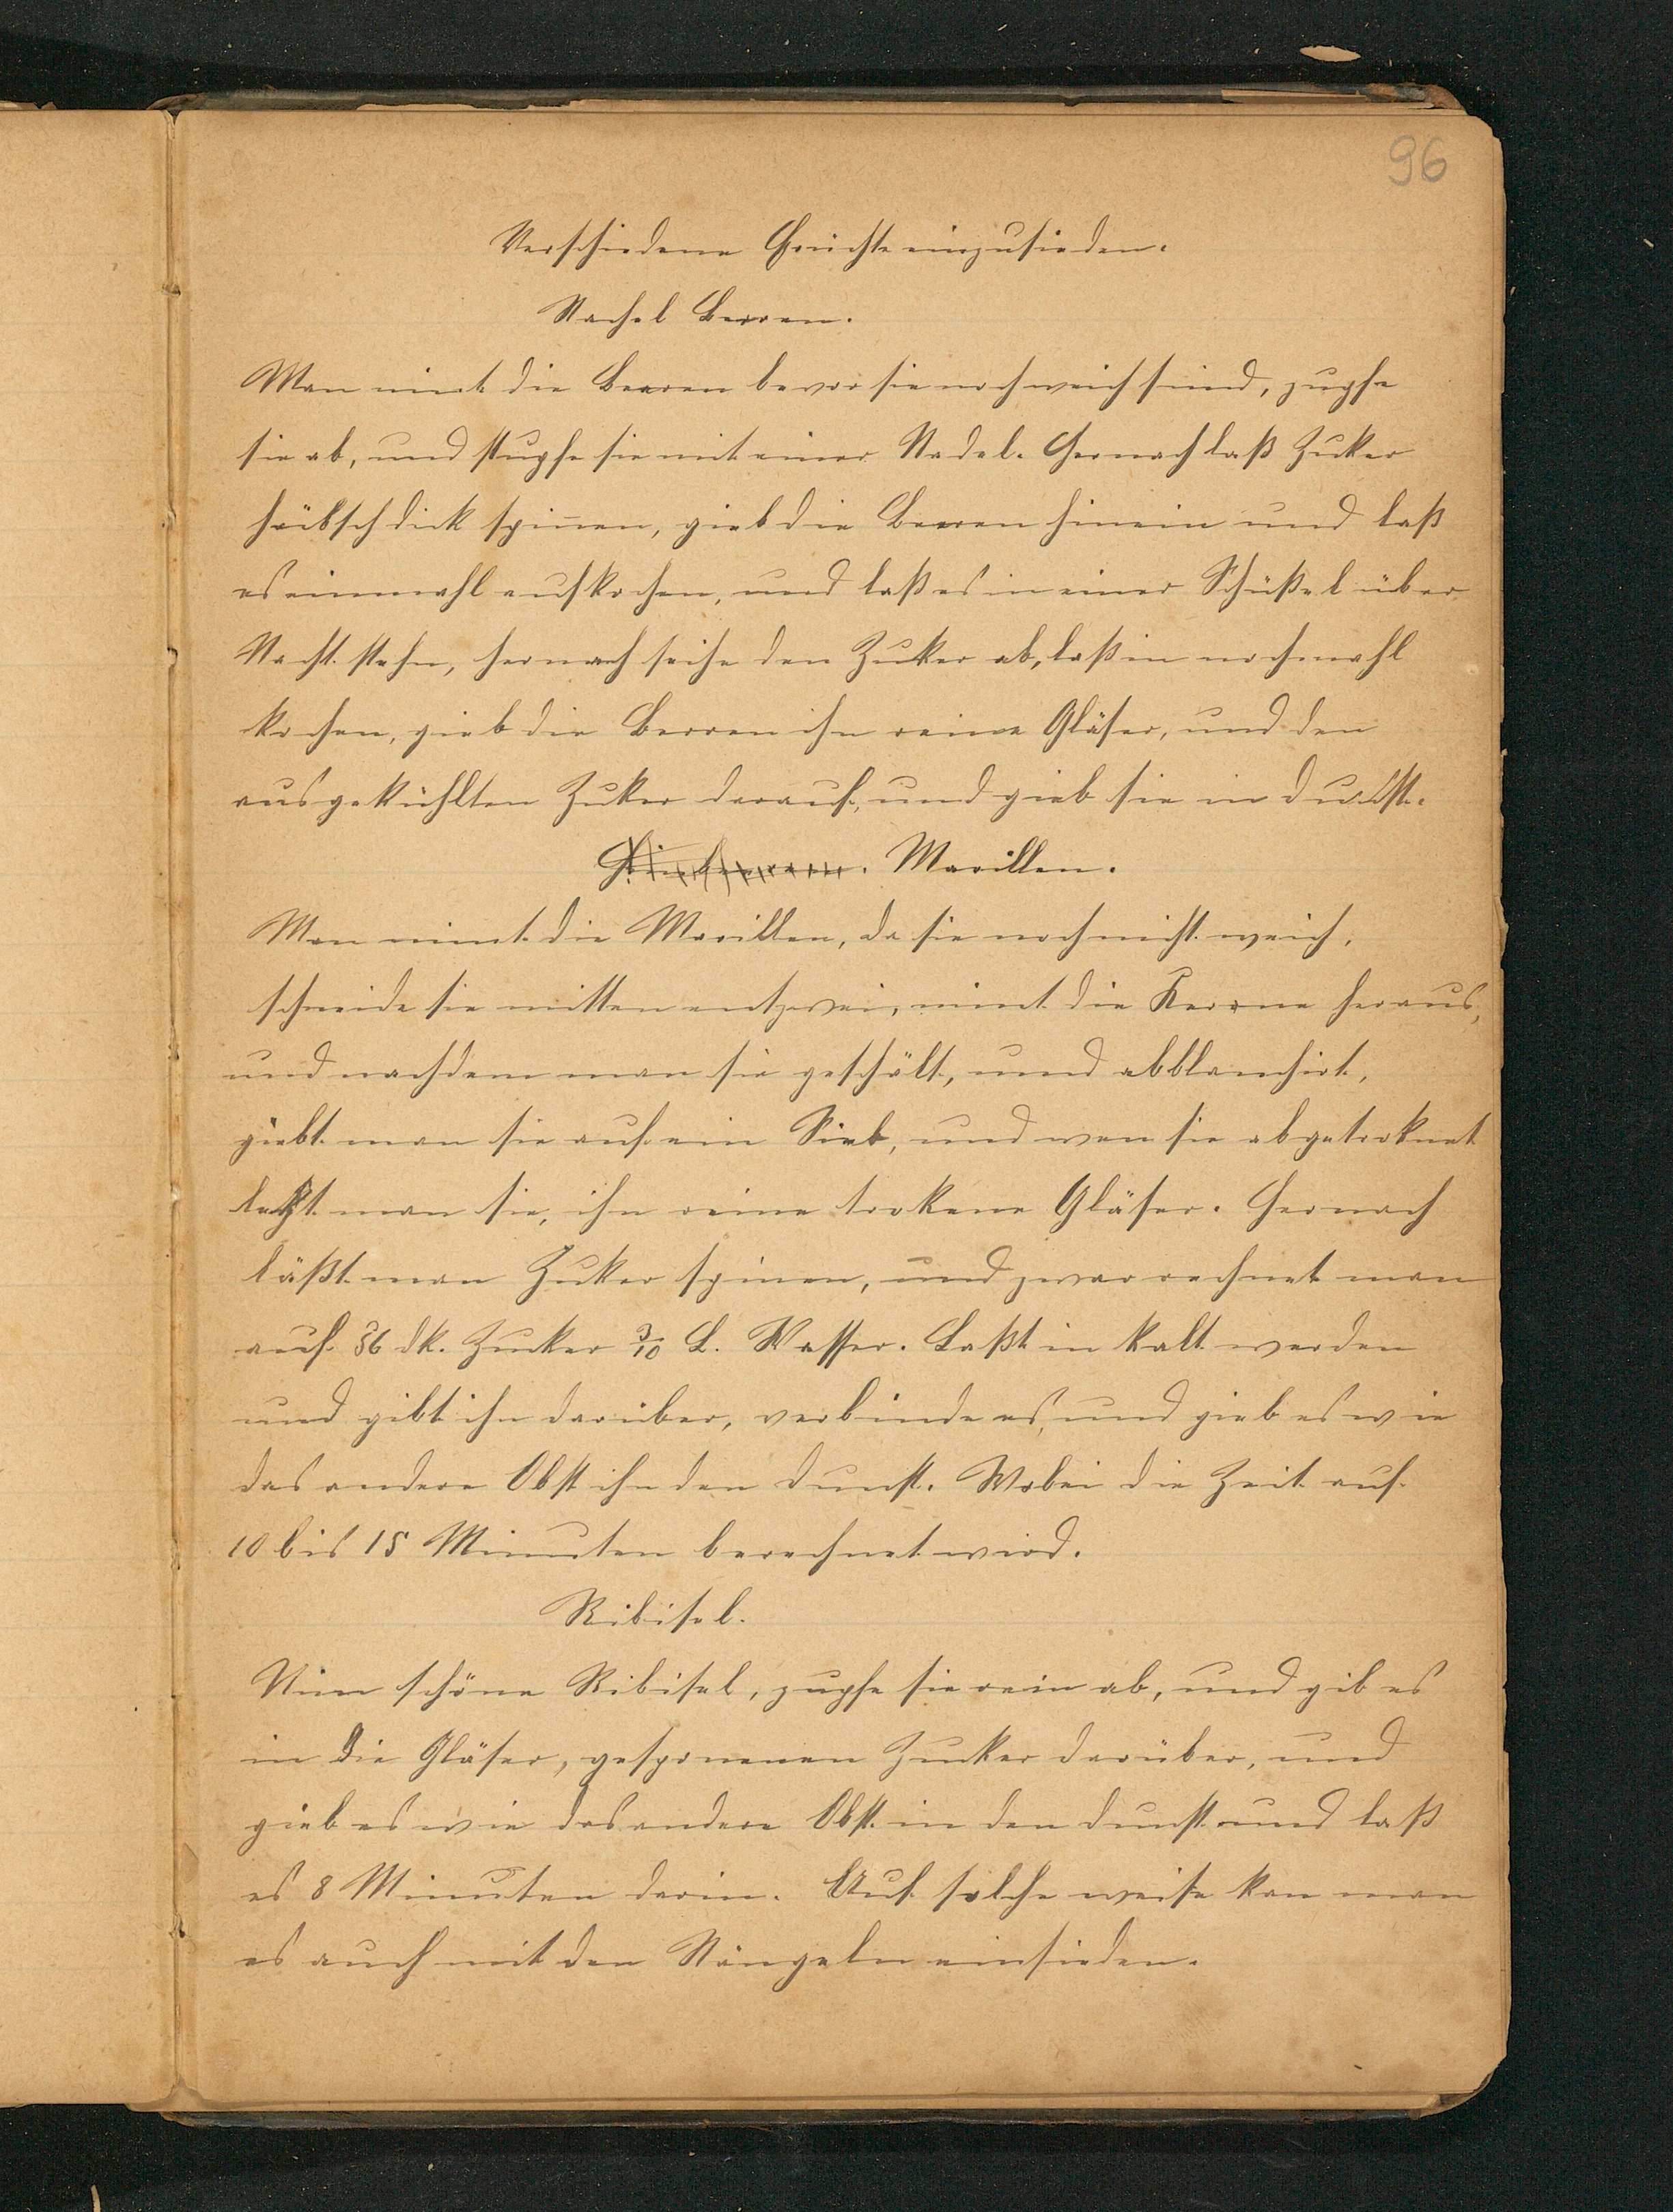 96
Verschiedene Früchte einzusieden.
Stachel Beeren.
Man nimt die Beeren bevor sie noch weich sind, zupfe
sie ab, und stupfe sie mit einer Nadel. Hernach laß Zuker
hübsch dick spinnen, gieb die Beeren hinein und laß
es einmahl aufkochen, und laß es in einer Schüßel über
Nacht stehn, hernach seihe den Zuker ab, laß in nochmahl
kochen, gieb die Beeren ihn reine Gläser, und den
ausgekühlten Zuker darauf, und gieb sie in Dunst.
Himbeeren. Marillen.
Man nimt die Marillen, da sie noch nicht weich,
schneide sie mitten entzwei, nimt die Kerne heraus,
und nachdem man sie geschält, und abblanchirt,
giebt man sie auf ein Sieb, und wen sie abgetroknet
legt man sie, ihn reine trokene Gläser. Hernach
läßt man Zuker spinen, und zwar rechnet man
auf 56 dk. Zucker 3/10 L. Wasser. Laßt in kalt werden
und gibt ihn darüber, verbinde es, und gieb es wie
das andere Obst ihn den Dunst. Wobei die Zeit auf
10 bis 15 Minuten berechnet wird.
Ribisel.
Nim schöne Ribisel, zupfe sie rein ab, und gib es
in die Gläser, gesponenen Zucker darüber, und
gieb es wie das andere Obst in den Dunst und laß
es 8 Minuten darin. Auf solche weise kan man
es auch mit den Stängeln einsieden.